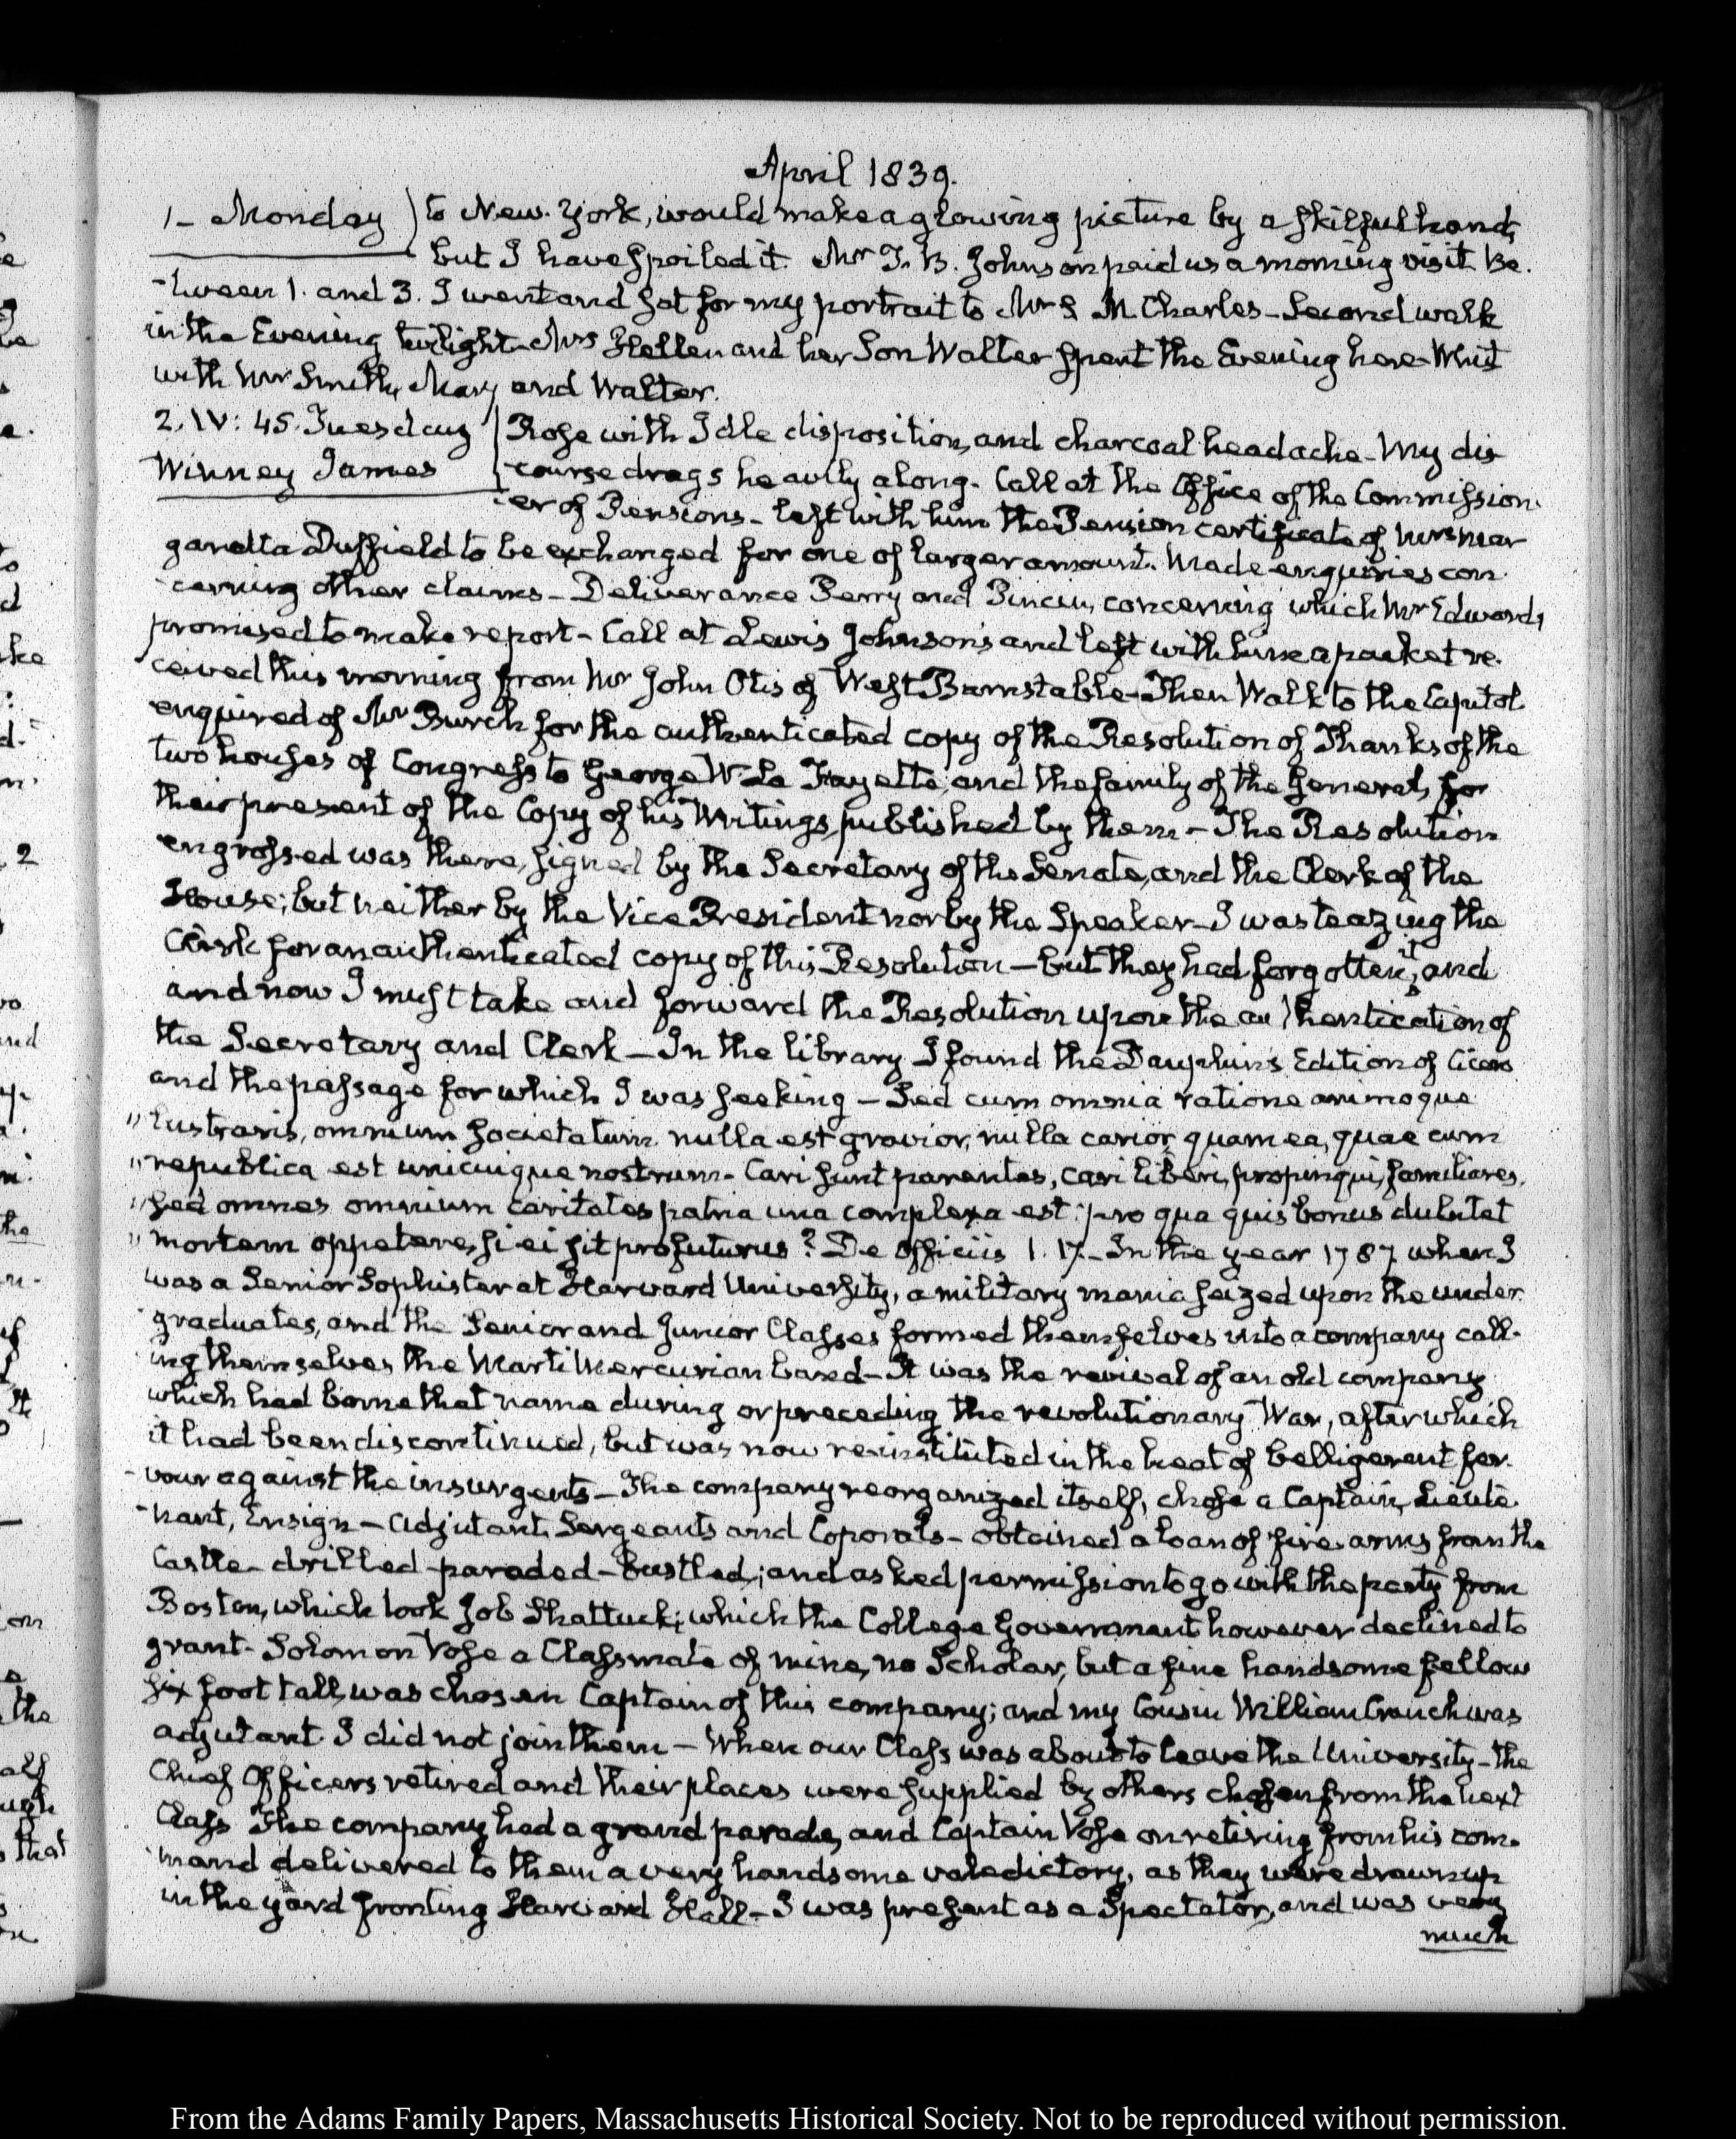 April 1839.
1- Monday ) to New-York, would make a glowing picture by a skilful hand,
but I have spoiled it. Mr T. B. Johnson paid us a morning visit Be.
-tween 1. and 3. I went and sat for my portrait to Mr S. M Charles- Second walk
in the Evening twilight- Mrs Hellen and her Son Walter spent the Evening here- Whist
with Mr Smith, Mary and Walter.
2. IV: 45. Tuesday ) Rose with Idle disposition, and charcoal headache- My dis
Winney James -course drags heavily along. Call at the Office of the Commission.
-er of Pensions- left with him the Pension certificate of Mrs Mar
garetta Duffield to be exchanged for one of larger amount. Made enquiries con.
-cerning other claims- Deliverance Perry and concerning which Mr Edwards
promised to make report- Call at Lewis Johnson's and left with him a packet re.
ceived this morning from Mr John Otis of West Barnstable- Then Walk to the Capitol.
enquired of Mr Burch for the authenticated copy of the Resolution of Thanks of the
two houses of Congress to George W. La Fayette, and the family of the General, for
their present of the Copy of his Writings, published by them- The Resolution
engrossed was there, signed by the Secretary of the Senate, and the Clerk of the
House; but neither by the Vice President nor by the Speaker- I was teazing the
Clerk for an authenticated copy of this Resolution- but they had forgotten it, and
and now I must take and forward the Resolution upon the authentication of
the Secretary and Clerk- In the library I found the Dauphin's Edition of Cicero
and the passage for which I was seeking- Sed cum omnia ratione animoque
" lustraris, omnium societatum nulla est gravior, nulla carior quam ea, quae cum
" republica est unicuique nostrum. Cari sunt parentes, cari liberi, propinqui, familiares,
" sed omnes omnium caritates patria una complexa est: pro qua quis bonus dubitet
" mortem oppetere, si ei sit profuturus? De Officiis 1. 17.- In the year 1787. when I
was a Senior Sophister at Harward University, a military mania seized upon the under
graduates, and the Senior and Junior Classes formed themselves into a company call.
ing themselves the Marti Mercurian band- It was the revival of an old company
which had borne that name during or preceding the revolutionary War, after which
it had been discontinued, but was now re-instituted in the heat of belligerent fer.
-vour against the insurgents- The company reorganized itself, chose a Captain, Lieute.
-nant, Ensign- Adjutant, Sergeants and Coporals- obtained a loan of fire-arms from the
Castle- drilled- paraded- bustled; and asked permission to go with the party from
Boston, which took Job Shattuck; which the College Government however declined to
grant- Solomon Vose a Classmate of mine, no Scholar, but a fine handsome fellow
six foot tall, was chosen Captain of this company; and my Cousin William Cranch was
adjutant. I did not join them- When our Class was about to leave the University- the
Chief Officers retired and their places were supplied by others chosen from the next
Class The company had a grand parade, and Captain Vose on retiring from his com-
mand delivered to them a very handsome valedictory, as they were drawn up
in the yard fronting Harward Hall- I was present as a Spectator, and was very
much
From the Adams Family Papers, Massachusetts Historical Society. Not to be reproduced without permission.